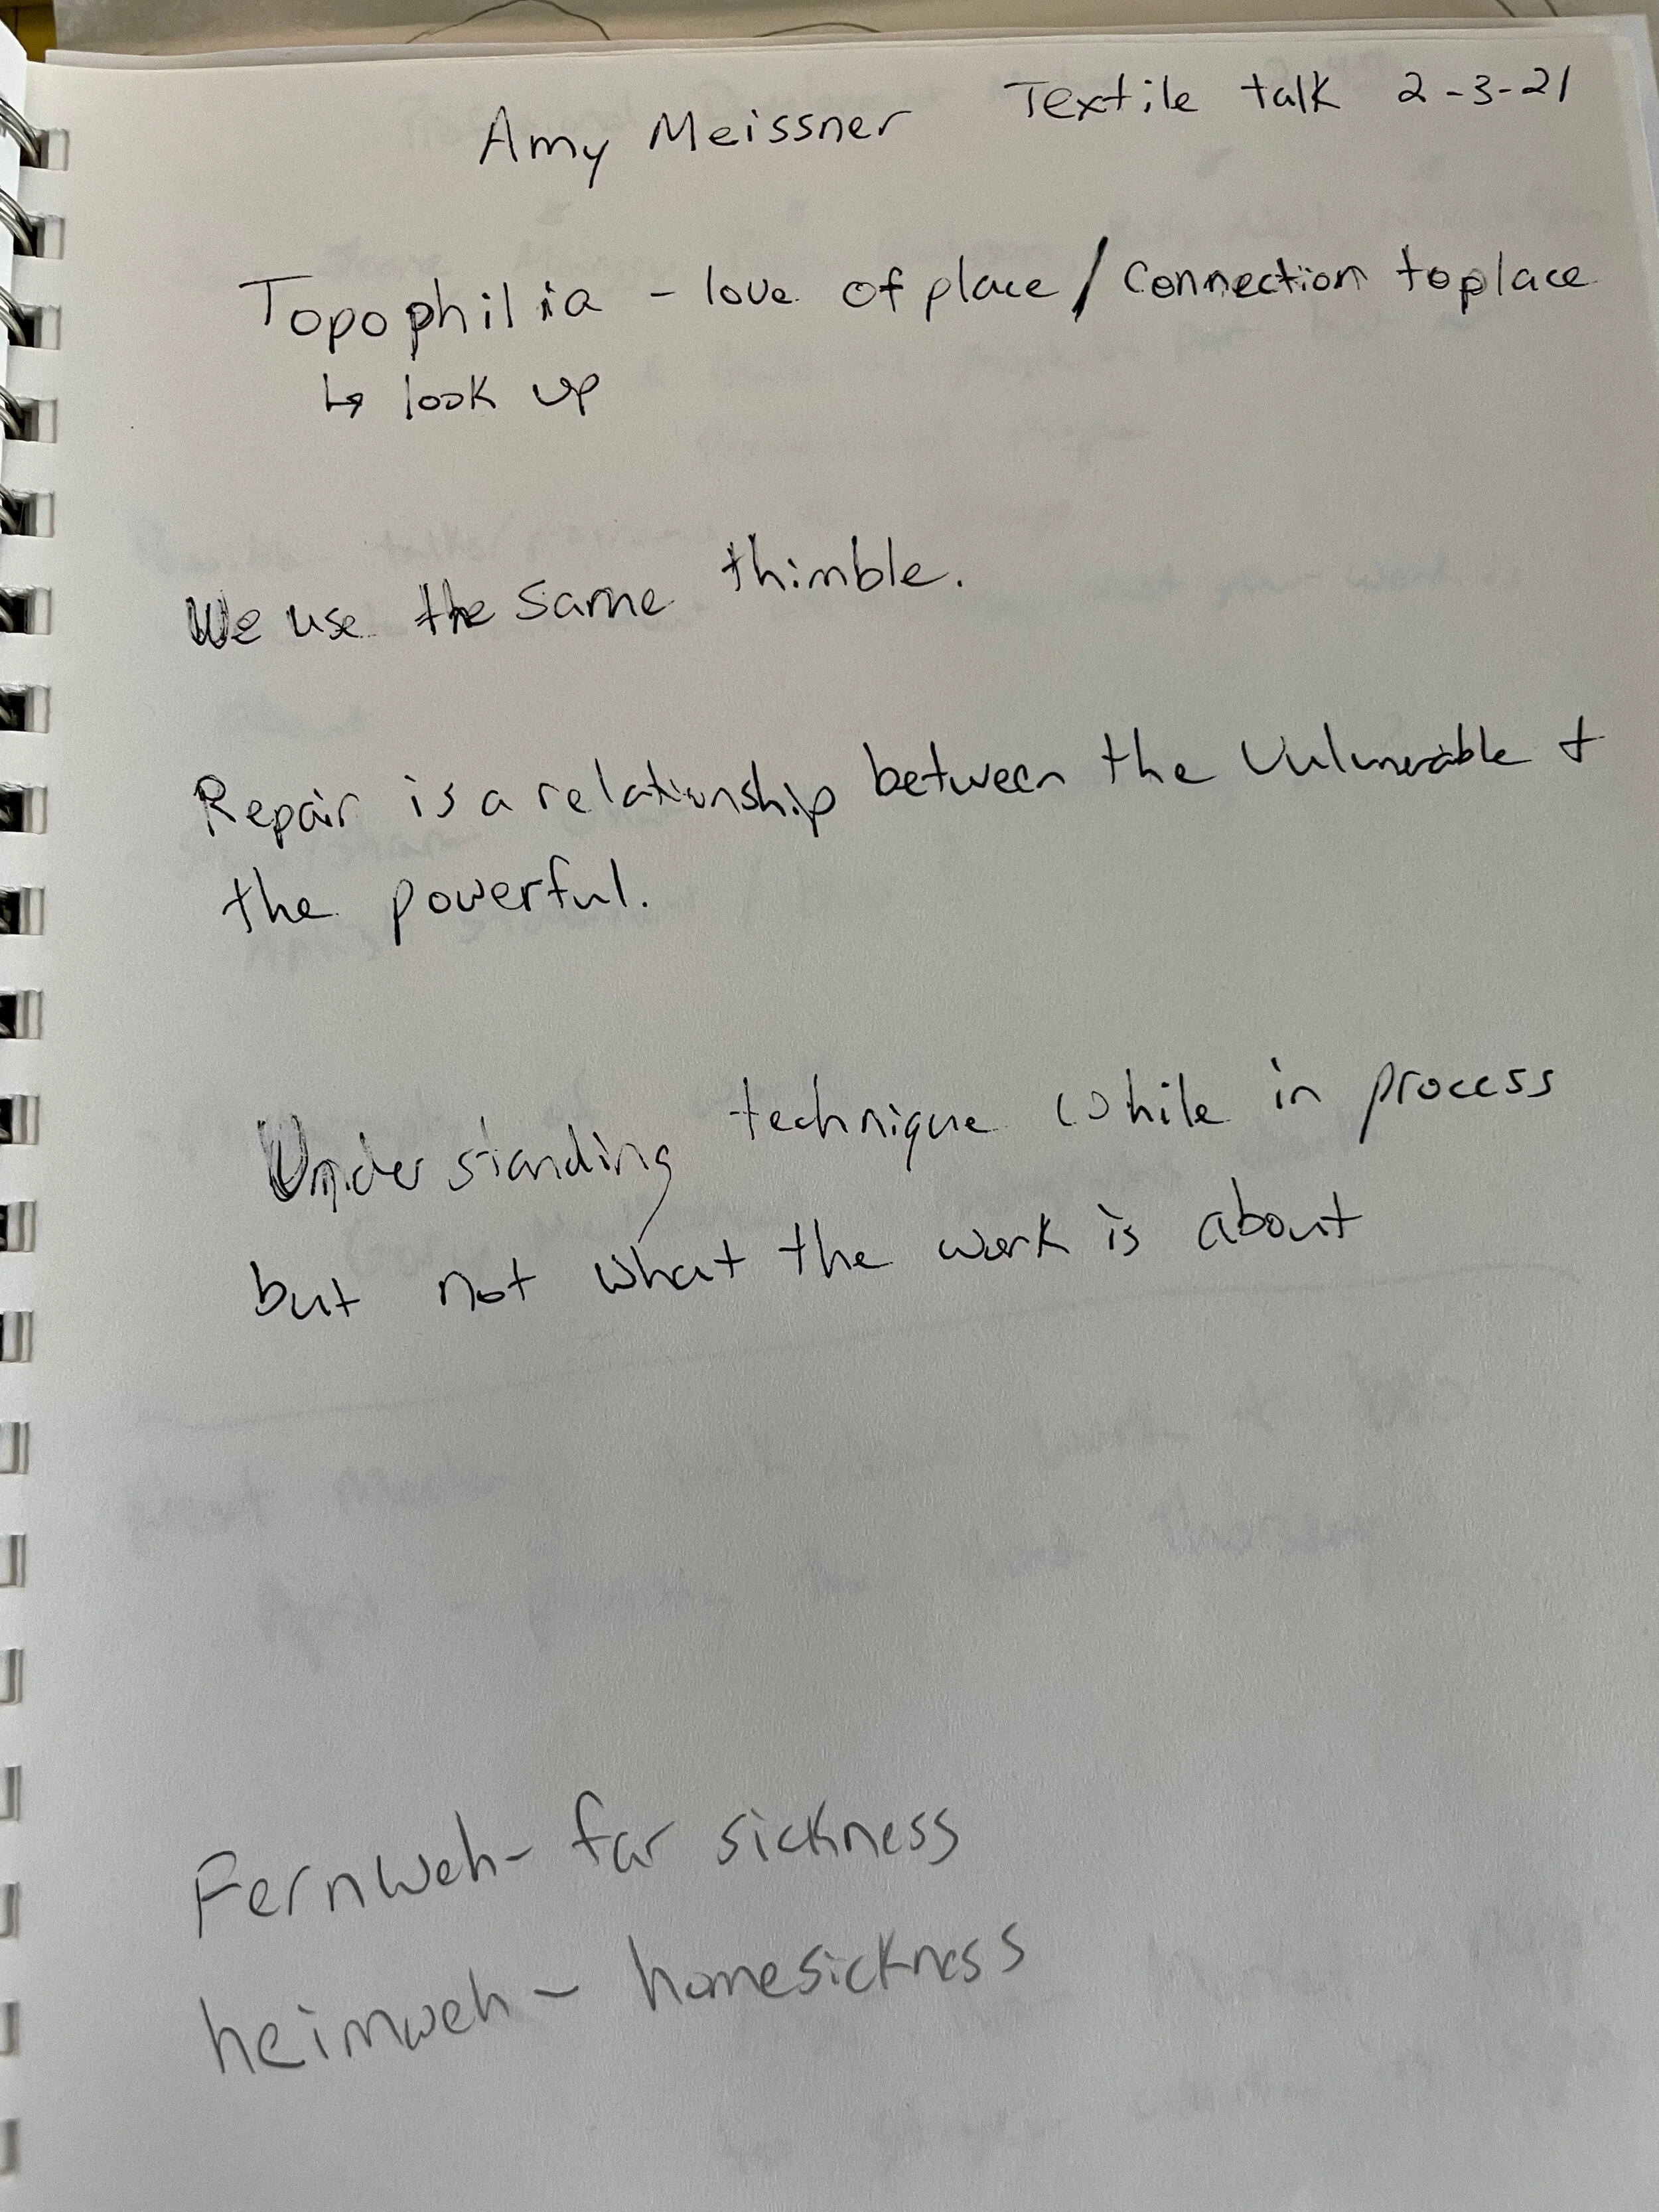 Amy Meissner Textile talk 2-3-21
Topophilia - love of place / Connection to place
↳ look up
We use the same thimble.
Repair is a relationship between the vulnerable +
the powerful.
Understanding technique while in process
but not what the work is about
Fernweh - far sickness
heimweh - homesickness